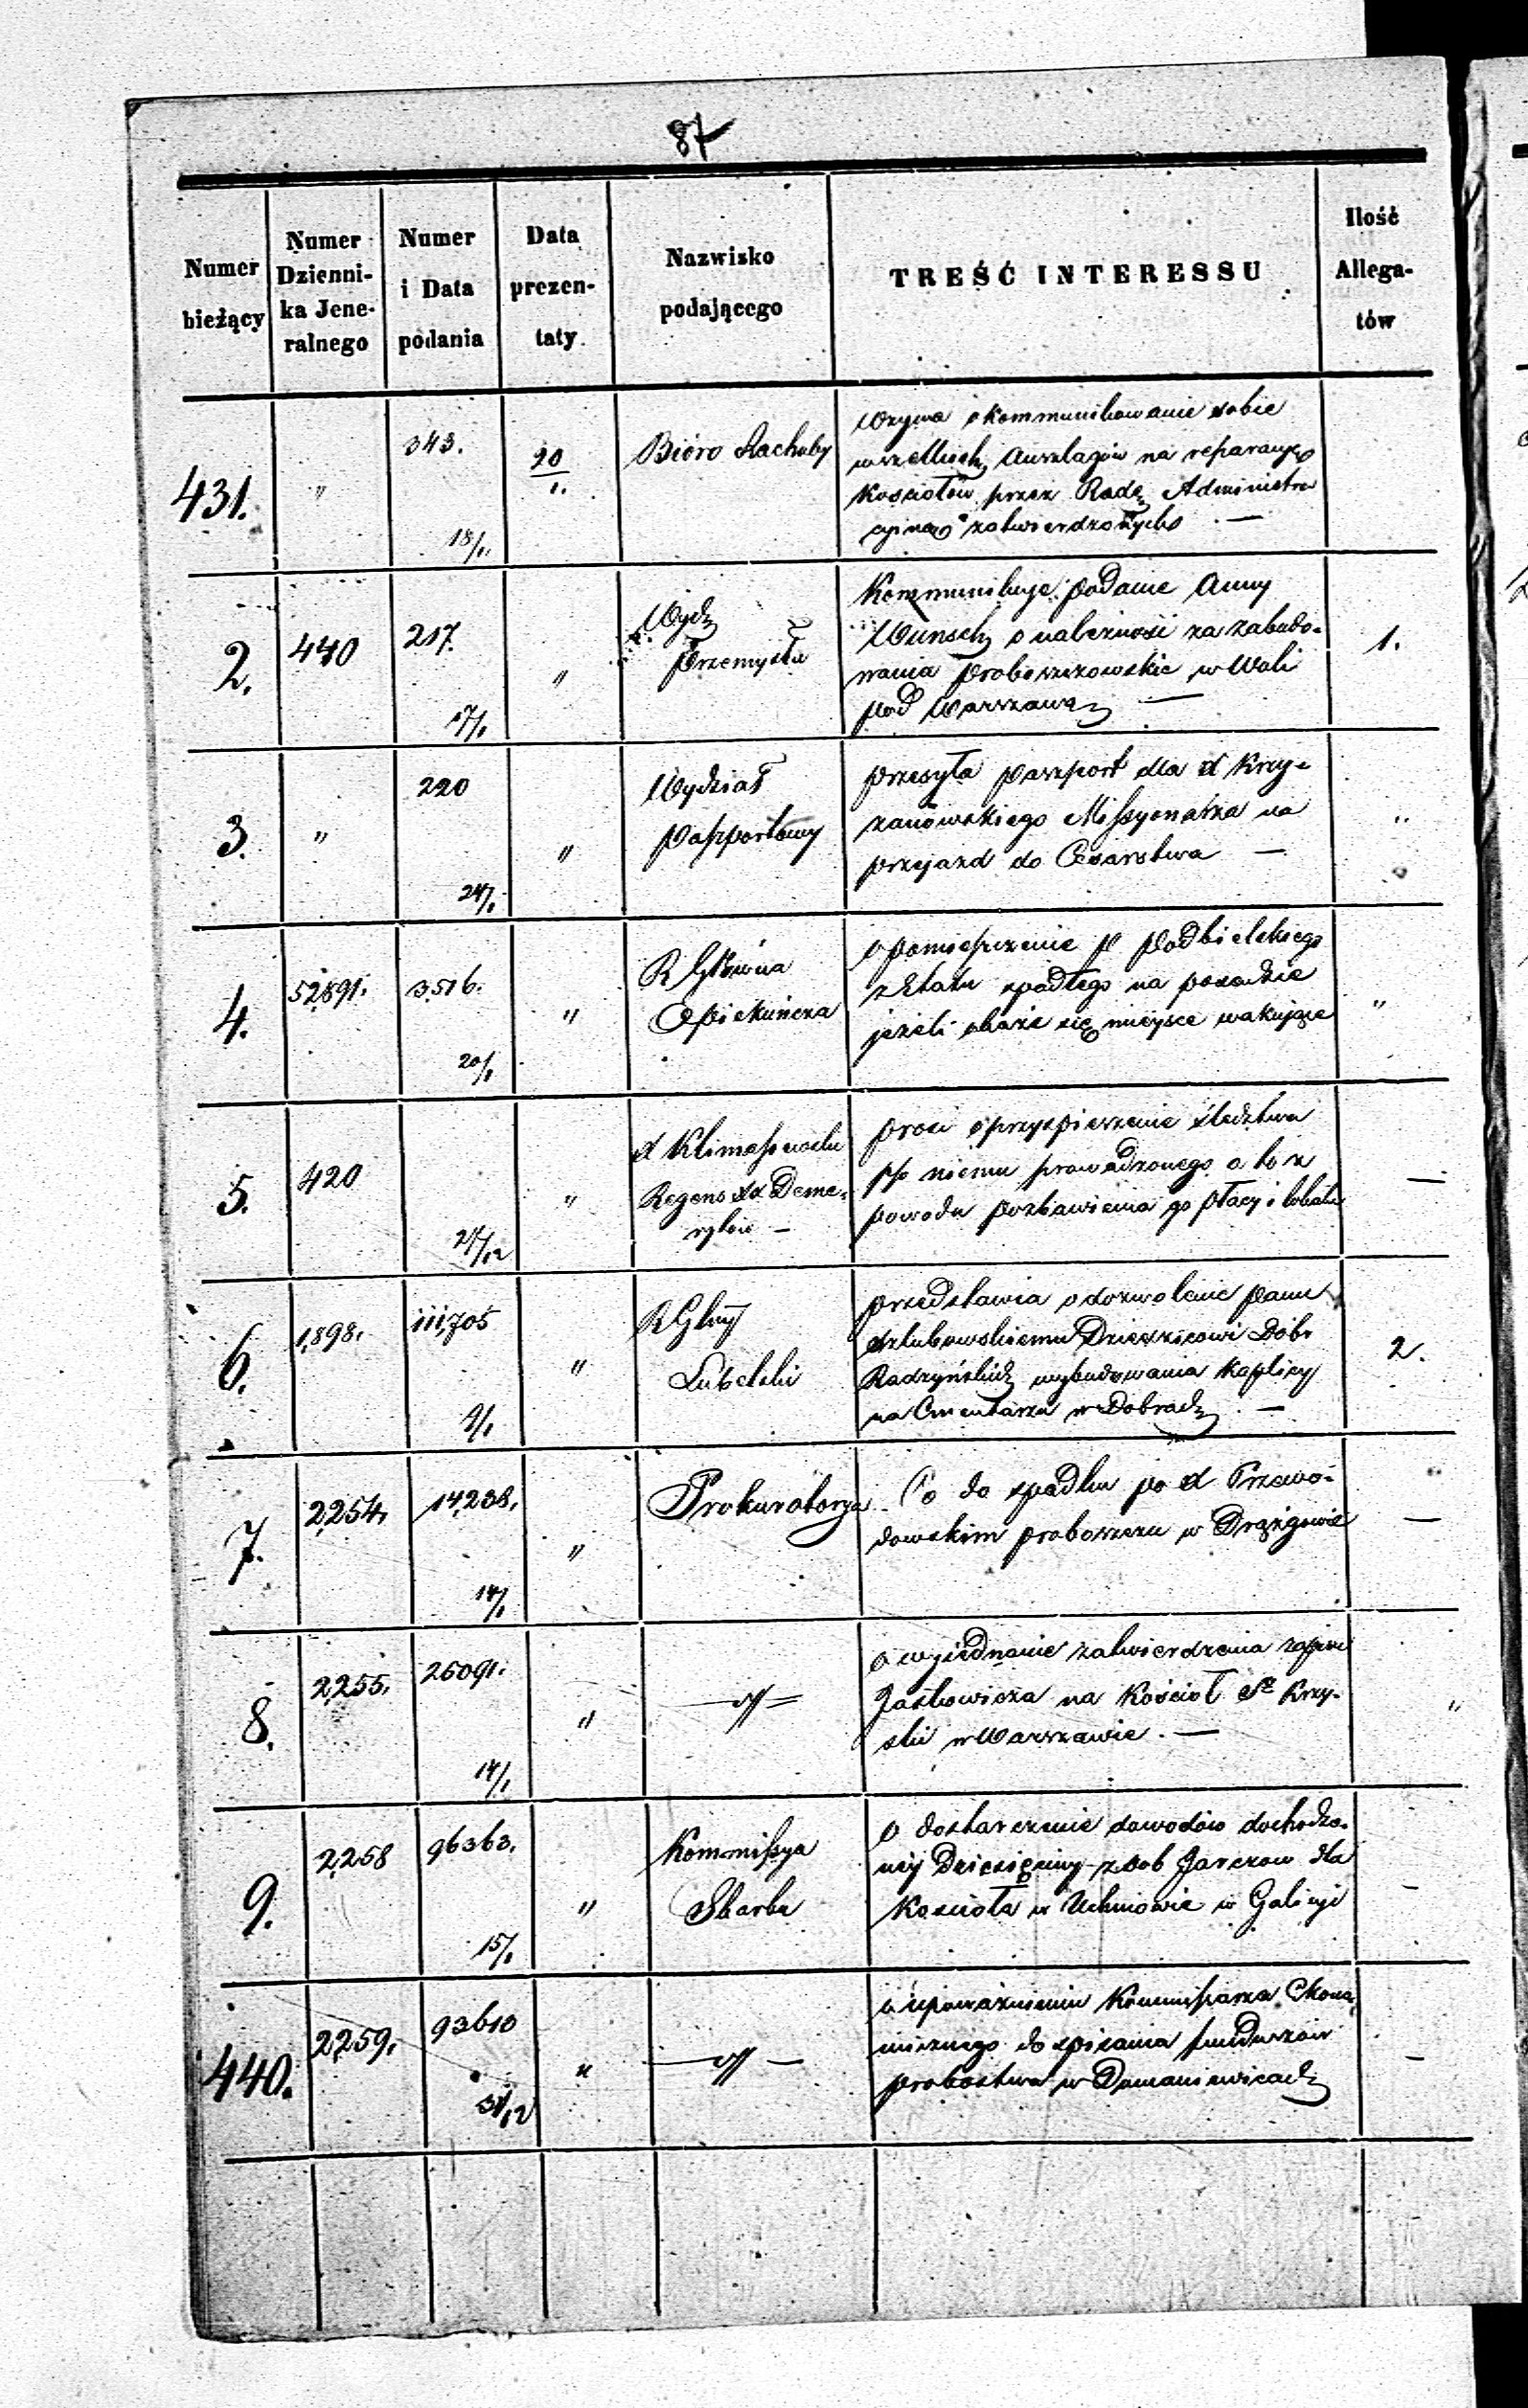 87
Numer bieżący
Numer Dzienni-
ka Jene-
ralnego
Numer
i Data
podania
Data
prezen-
taty
Nazwisko
podającego
TREŚĆ INTERESSU
Ilość
Allega-
tów
431.
"
343.
18/1.
20/1.
Bióro Rachuby
Wzywa o kommunikowanie sobie
wszelkich Anszlagów na reparacye
Kościołów przez Radę Administra
cyjną zatwierdzonych —
2.
440
217.
17/1
"
Wydz
Przemysłu
Kommunikuje podanie Anny
Wunsch o należność za zabudo-
wania proboszczowskie w Woli
pod Warszawą —
1.
3.
"
220
24/1
"
Wydział
Passportowy
przesyła paszport dla X Krzy-
żanowskiego Missyonarza na
przejazd do Cesarstwa —
"
4.
52891.
3516.
20/1
"
R Główna
Opiekuńcza
o pomieszczenie P Podbielskiego
z Etatu spadłego na posadzie
jeżeli okaże się miejsce wakujące
"
5.
420
27/12
"
X Klimaszewski
Regens XX Deme-
rytów —
prosi o przyspieszenie śledztwa
pko niemu prowadzonego a to z
powodu pozbawienia go płacy i
—
6.
1,898.
111,705
9/1
"
R Glny
Lubelski
przedstawia o dozwolenie panu
Dziedzicowi Dóbr
Radzyńskich wybudowania Kaplicy
na Cmentarzu w Dobrach —
2.
7.
2,254.
14,238.
14/1
"
Prokuratorya
Co do spadku po X Przewo-
dowskim proboszczu w Drążgowie
—
8.
2,255.
26091.
14/1
"
—//—
o wyjednanie zatwierdzenia zapisu
Jaśkowicza na Kościół Sgo Krzy-
ski w Warszawie. —
"
9.
2,258
96363.
15/1
"
Kommissya
Skarbu
o dostarczenie dowodów dochodzo-
nej Dziesięciny z dób Jarczow dla
Kościoła w Uchnowie w Galicyi
-
440.
2,259.
93610
31/12
"
—//—
o upoważnieniu Kommissarza Ekono-
micznego do spisania funduszów
probostwa w Domaniewicach
-